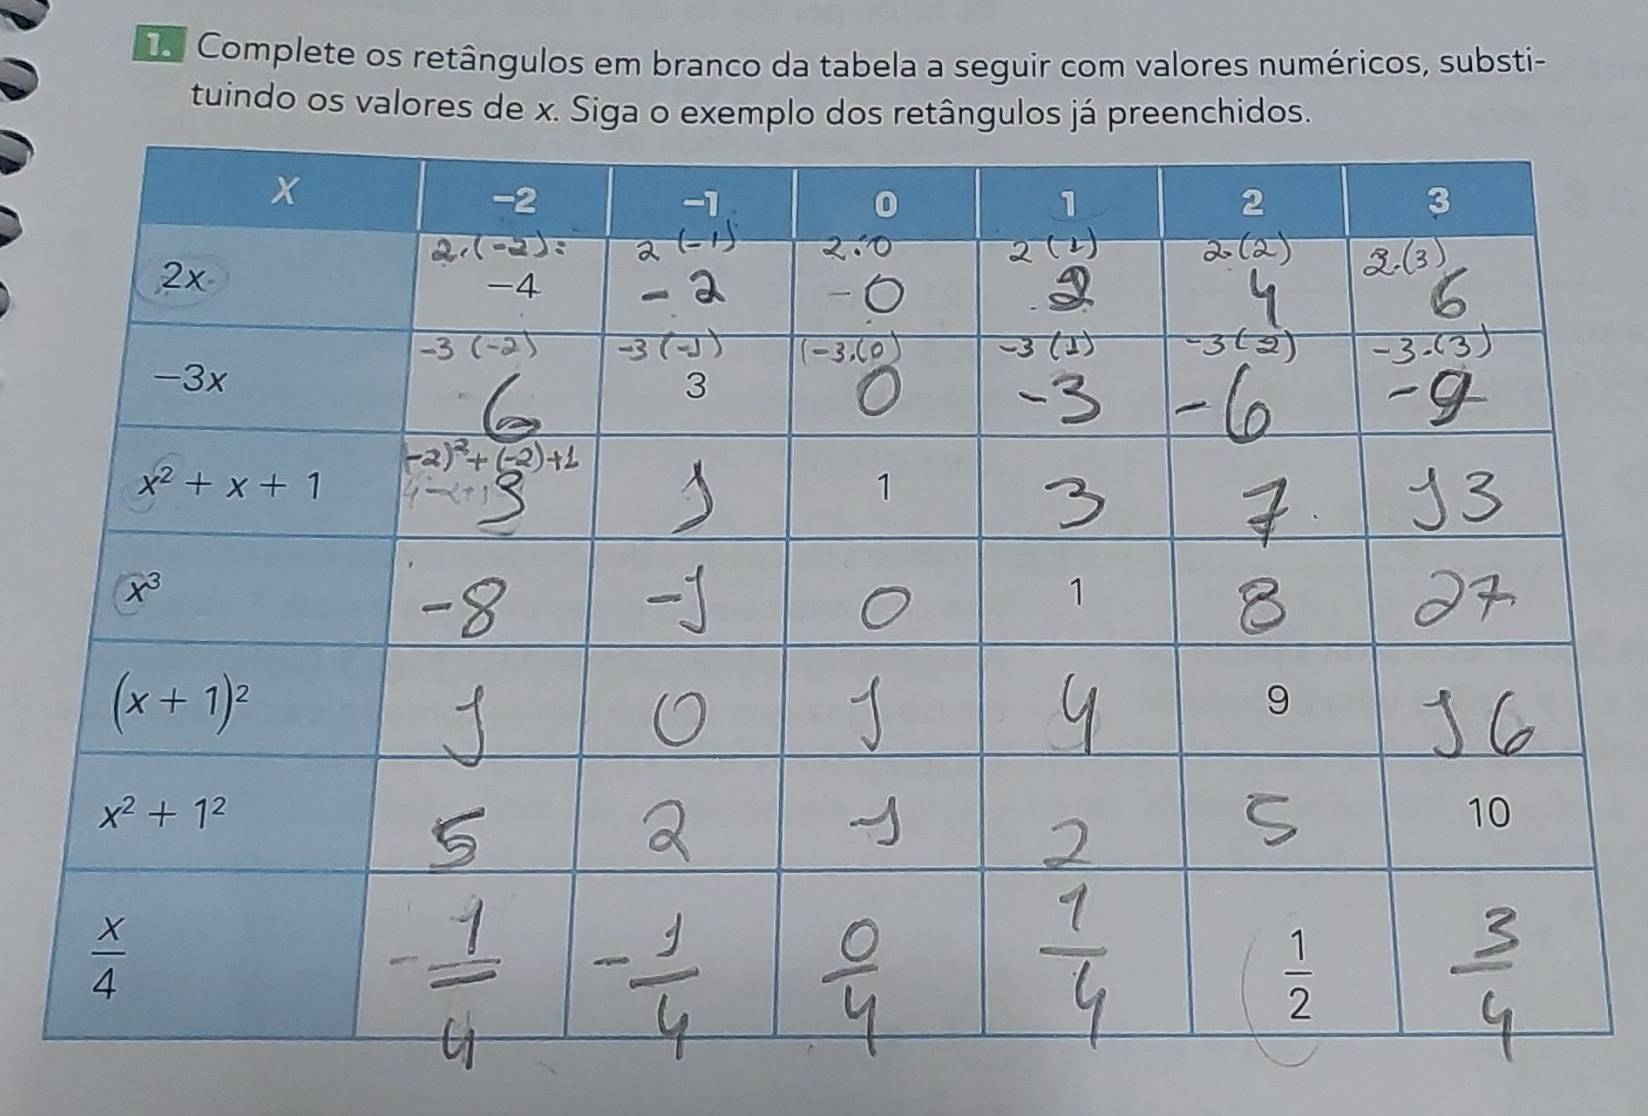 1. Complete os retângulos em branco da tabela a seguir com valores numéricos, substi-
tuindo os valores de x. Siga o exemplo dos retângulos já preenchidos.
x -2 -1 0 1 2 3
2.(-2)= 2(-1) 2.0 2(1) 2.(2) 2.(3)
2x -4 -2 -0 2 4 6
-3(-2) -3(-1) (-3.(0) -3(1) -3(2) -3.(3)
-3x 6 3 0 -3 -6 -9
(-2)²+(-2)+1
x² + x + 1 3 1 1 3 7 13
x³ -8 -1 0 1 8 27
(x + 1)² 1 0 1 4 9 16
x² + 1² 5 2 1 2 5 10
x/4 -1/4 -1/4 0/4 1/4 1/2 3/4